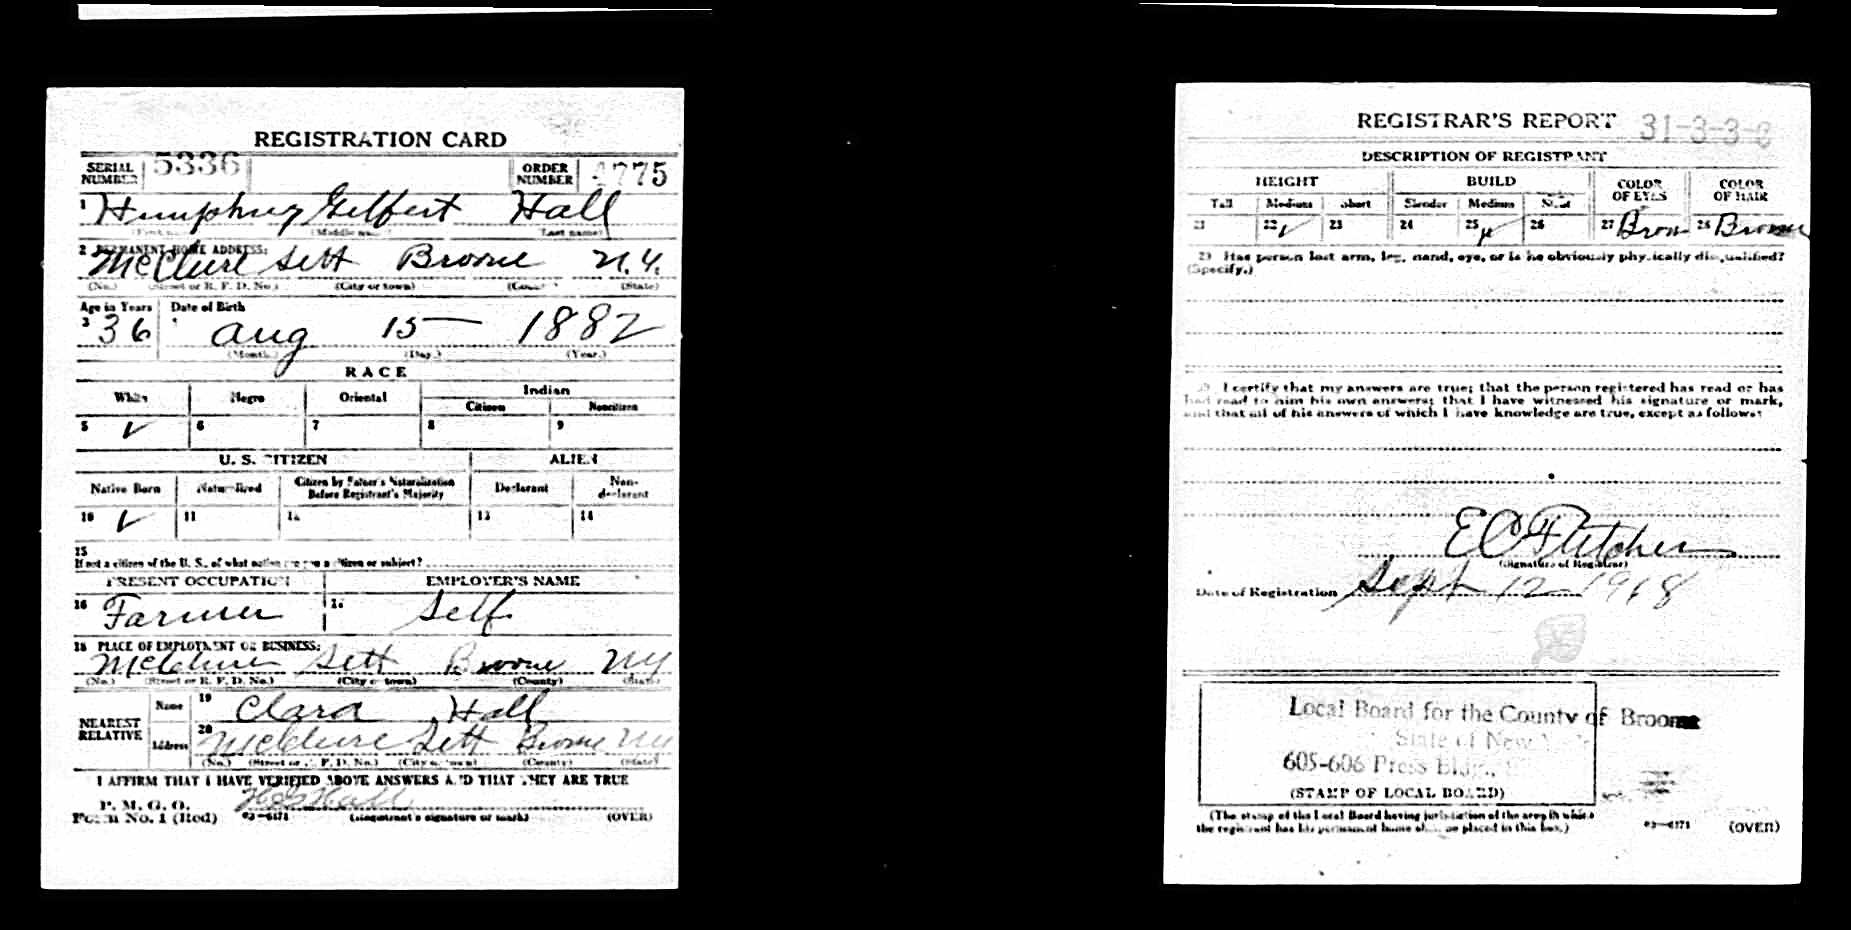 REGISTRATION CARD
SERIAL NUMBER 5336 ORDER NUMBER 4775
1 Humphrey Gilbert Hall
(First name) (Middle name) (Last name)
2 PERMANENT HOME ADDRESS:
McClure Sett Broome N.Y.
(No.) (Street or R. F. D. No.) (City or town) (County) (State)
Age in Years Date of Birth
3 36 Aug 15 1882
(Month.) (Day.) (Year.)
RACE
White Negro Oriental Indian
Citizen Noncitizen
5 ✓ 6 7 8 9
U. S. CITIZEN ALIEN
Native Born Naturalized Citizen by Father's Naturalization Before Registrant's Majority Declarant Non-declarant
10 ✓ 11 12 13 14
15
If not a citizen of the U. S., of what nation are you a citizen or subject?
PRESENT OCCUPATION EMPLOYER'S NAME
16 Farmer 17 Self
18 PLACE OF EMPLOYMENT OR BUSINESS:
McClure Sett Broome NY
(No.) (Street or R. F. D. No.) (City or town) (County) (State)
NEAREST RELATIVE
Name 19 Clara Hall
Address 20 McClure Sett Broome NY
(No.) (Street or R. F. D. No.) (City or town) (County) (State)
I AFFIRM THAT I HAVE VERIFIED ABOVE ANSWERS AND THAT THEY ARE TRUE
P. M. G. O.
Form No. 1 (Red) 03—6171 H G Hall
(Registrant's signature or mark) (OVER)
REGISTRAR'S REPORT 31-3-3-
DESCRIPTION OF REGISTRANT
HEIGHT BUILD COLOR OF EYES COLOR OF HAIR
Tall Medium Short Slender Medium Stout
21 22 ✓ 23 24 25 26 27 Brown 28 Brown
29 Has person lost arm, leg, hand, eye, or is he obviously physically disqualified?
(Specify.)
30 I certify that my answers are true; that the person registered has read or has
had read to him his own answers; that I have witnessed his signature or mark,
and that all of his answers of which I have knowledge are true, except as follows:
E C Fletcher
(Signature of Registrar)
Date of Registration Sept 12 1918
Local Board for the County of Broome
State of New York
605-606 Press Bldg.,
(STAMP OF LOCAL BOARD)
(The stamp of the Local Board having jurisdiction of the area in which
the registrant has his permanent home shall be placed in this box.)
03—6171 (OVER)